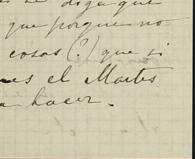 se diga que
que porque no
cosas (?) que si
es el Martes
a hacer.